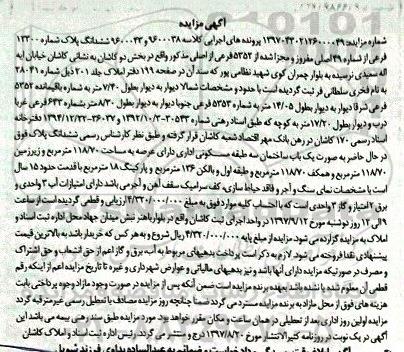 آگهی مزایده
شماره مزایده: ۱۳۹۷۰۴۳۰۲۱۲۶۰۰۰۰۴۹ پرونده های اجرایی کلاسه ۹۶۰۰۰۳۸ و ۹۶۰۰۰۴۳ ششدانگ پلاک شماره ۱۲۳۰۰
فرعی از شماره ۴۹ اصلی مفروز و مجزا شده از ۵۳۵۲ فرعی از اصلی مذکور واقع در بخش دو کاشان به نشانی کاشان خیابان آیه
اله سعیدی نرسیده به بلوار چمران کوی شهید نظامی پور که سند آن در صفحه ۱۹۹ دفتر املاک جلد ۲۰۱ ذیل شماره ۲۸۰۴۱
به نام فخری سلطانی فر ثبت گردیده است با حدود و مشخصات شمالا دیوار به دیوار بطول ۷/۴۰ متر به شماره باقیمانده ۵۳۵۲
فرعی شرقا دیوار به دیوار بطول ۱۴/۰۵ متر به شماره ۵۳۵۲ فرعی جنوبا دیوار به دیوار بطول ۸/۳۰ متر بشماره ۶۳۳ فرعی غربا
درب و دیوار بطول ۱۷/۲۰ متر به کوچه که طبق اسناد رهنی شماره ۲۰۵۳۳-۱۳۹۲/۱۰/۳ و ۲۲۶۳۷-۱۳۹۴/۱۲/۲۲ دفترخانه
اسناد رسمی ۱۷۰ کاشان در رهن بانک مهر اقتصاد شعبه کاشان قرار گرفته و طبق نظر کارشناس رسمی ششدانگ پلاک فوق
در حال حاضر به صورت یک باب ساختمان سه طبقه مسکونی اداری دارای عرصه به مساحت ۱۱۸/۷۰ مترمربع و زیرزمین
۱۱۸/۷۰ مترمربع و همکف ۱۱۸/۷۰ مترمربع و طبقه اول و بالکن ۱۳۶ مترمربع و پارکینگ ۱۸ مترمربع با قدمت حدود ۱۵ سال
است با مشخصات نمای سنگ و آجر و فاقد حیاط سازی، کف سرامیک سقف آهن و آجر می باشد دارای امتیازات آب ۳ واحدی و
برق ۲ امتیاز و گاز ۳ واحدی است که با احتساب کلیه موارد فوق به مبلغ ۴/۳۲۰/۰۰۰/۰۰۰ ریال ارزیابی و قطعی گردیده است از ساعت
۹ الی ۱۲ روز دوشنبه مورخ ۱۳۹۷/۹/۱۲ در واحد اجرای ثبت کاشان واقع در بلوار باهنر نبش میدان جهاد محل اداره ثبت اسناد و
املاک به مزایده گزارده می شود. مزایده از مبلغ پایه ۴/۳۲۰/۰۰۰/۰۰۰ ریال شروع و به هر کس که خریدار باشد به بالاترین قیمت
پیشنهادی نقدا فروخته می شود. لازم به ذکر است پرداخت بدهیهای مربوط به آب، برق و گاز اعم از حق انشعاب و حق اشتراک
و مصرف در صورتیکه مزایده دارای آنها باشد و نیز بدهیهای مالیاتی و عوارض شهرداری و غیره تا تاریخ مزایده اعم از اینکه رقم
قطعی آن معلوم شده یا نشده باشد بعهده برنده مزایده است ضمن آنکه پس از مزایده در صورت وجود مازاد وجوه پرداختی بابت
هزینه های فوق از محل مازاد به برنده مزایده مسترد می گردد ضمنا چنانچه روز مزایده مصادف با تعطیل رسمی غیرمترقبه گردد
مزایده اولین روز اداری بعد از تعطیلی در همان ساعت و مکان مقرر خواهد بود. مورد مزایده طبق سند رهنی بیمه می باشد این
آگهی در یک نوبت در روزنامه کثیرالانتشار مورخ ۱۳۹۷/۸/۲۰ درج و منتشر می گردد. رئیس اداره ثبت اسناد و املاک کاشان